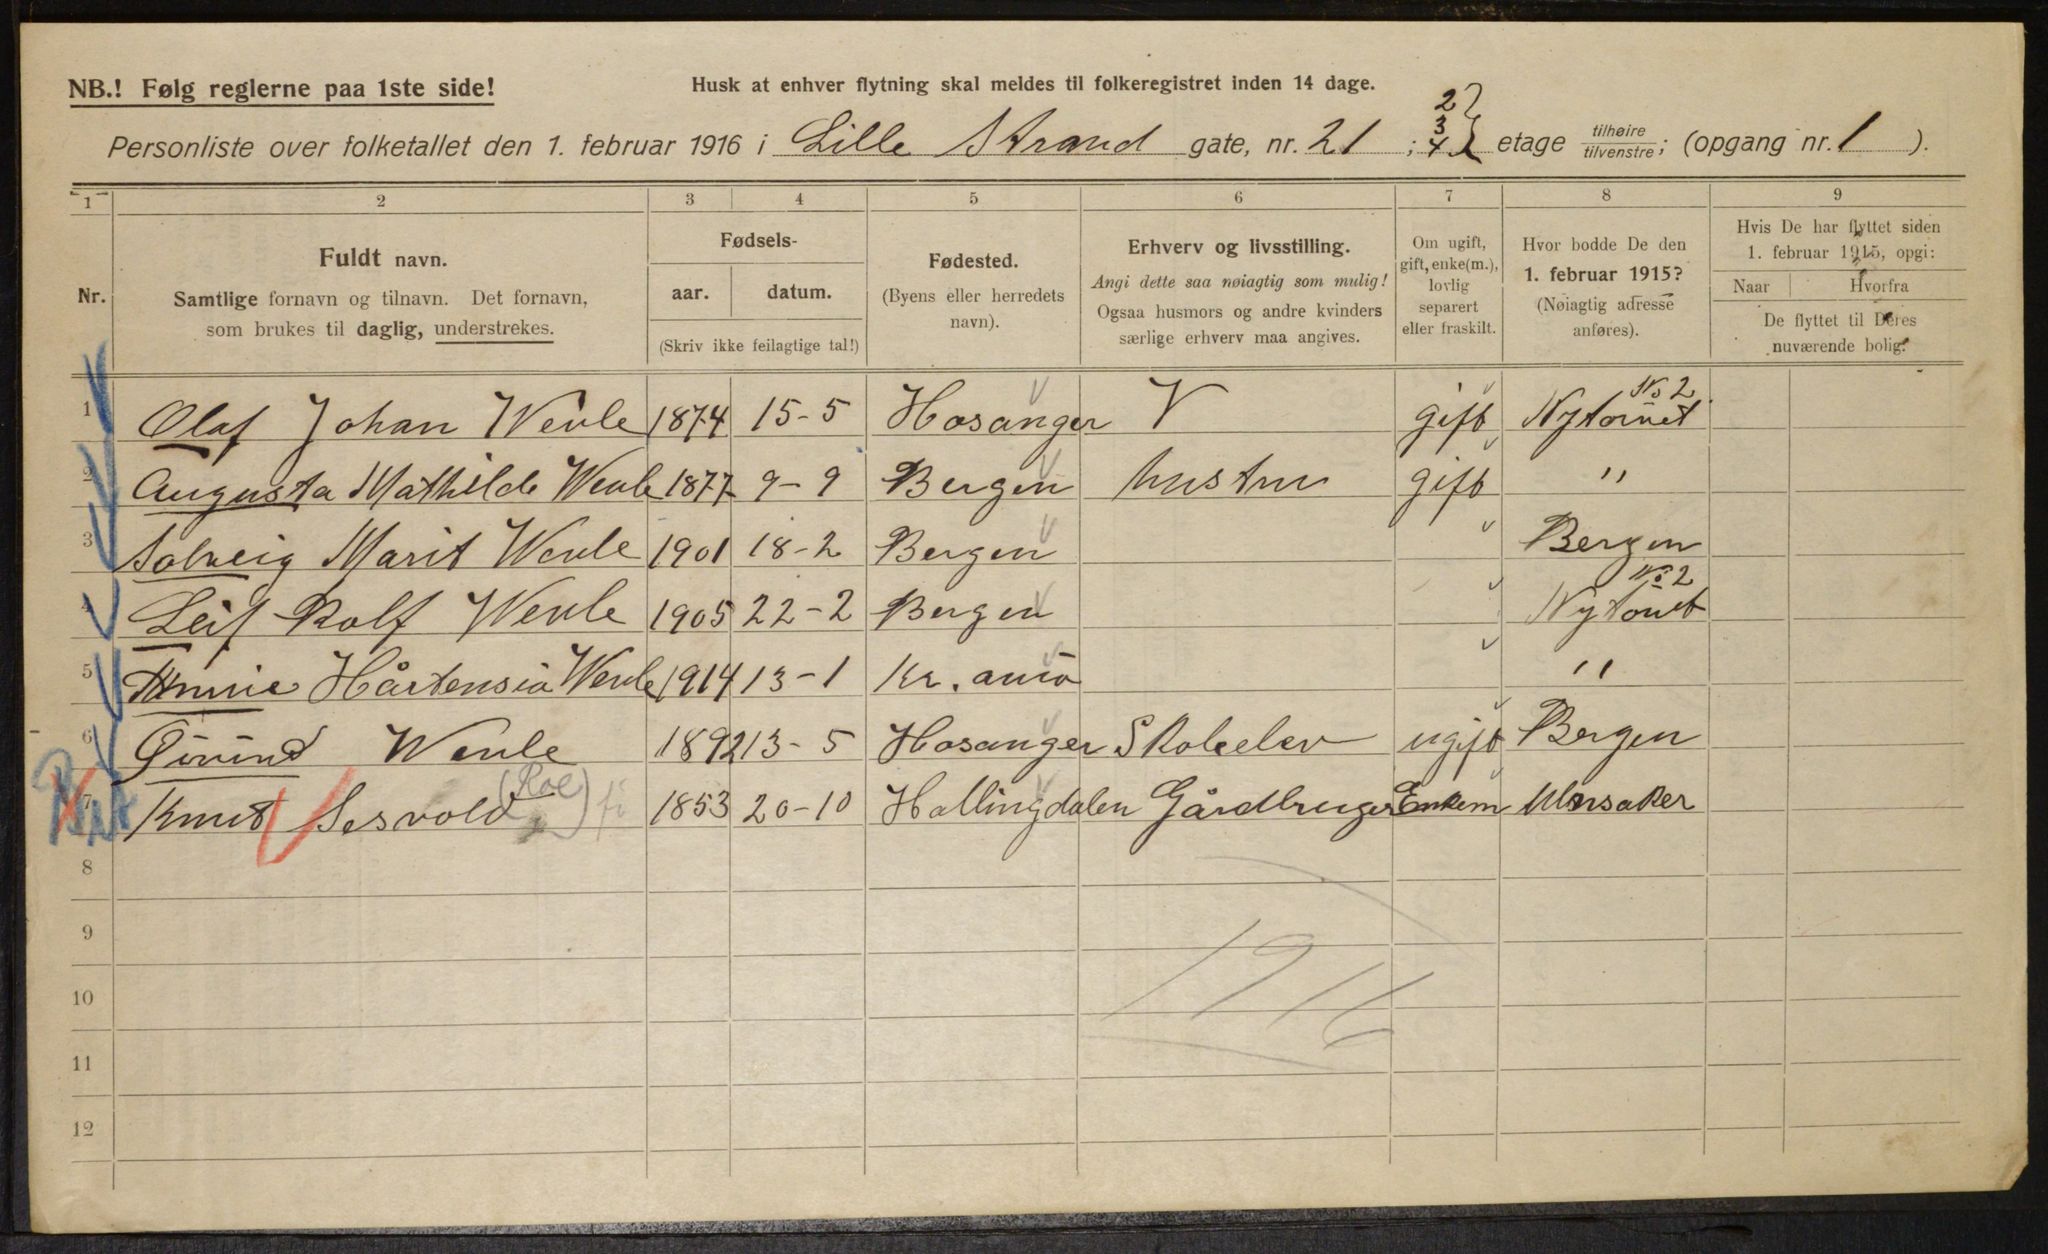 NB.! Følg reglerne paa 1ste side!
Husk at enhver flytning skal meldes til folkeregistret inden 14 dage.
Personliste over folketallet den 1. februar 1916 i Lille Strand gate, nr. 21 ; 2 3 4 etage tilhøire tilvenstre ; (opgang nr. 1 ).
1 2 3 4 5 6 7 8 9
Nr.
Fuldt navn.
Samtlige fornavn og tilnavn. Det fornavn,
som brukes til daglig, understrekes.
Fødsels-
aar. datum.
(Skriv ikke feilagtige tal!)
Fødested.
(Byens eller herredets
navn).
Erhverv og livsstilling.
Angi dette saa nøiagtig som mulig!
Ogsaa husmors og andre kvinders
særlige erhverv maa angives.
Om ugift,
gift, enke(m.),
lovlig
separert
eller fraskilt.
Hvor bodde De den
1. februar 1915?
(Nøiagtig adresse
anføres).
Hvis De har flyttet siden
1. februar 1915, opgi:
Naar Hvorfra
De flyttet til Deres
nuværende bolig.
1 Olaf Johan Weule 1874 15-5 Hosanger V gift Nytorvet No 2
2 Augusta Mathilde Weule 1877 9-9 Bergen hustru gift "
3 Solveig Marit Weule 1901 18-2 Bergen Bergen
4 Leif Rolf Weule 1905 22-2 Bergen Nytorvet No 2
5 Hårtensia Weule 1914 13-1 Kr.ania "
6 Øivind Weule 1892 13-5 Hosanger Skoleelev ugift Bergen
7 Knut Sesvold (Roe) 1853 20-10 Hallingdalen Gårdbruger Enkem Ulnsaker
8
9
10
11
12
1916